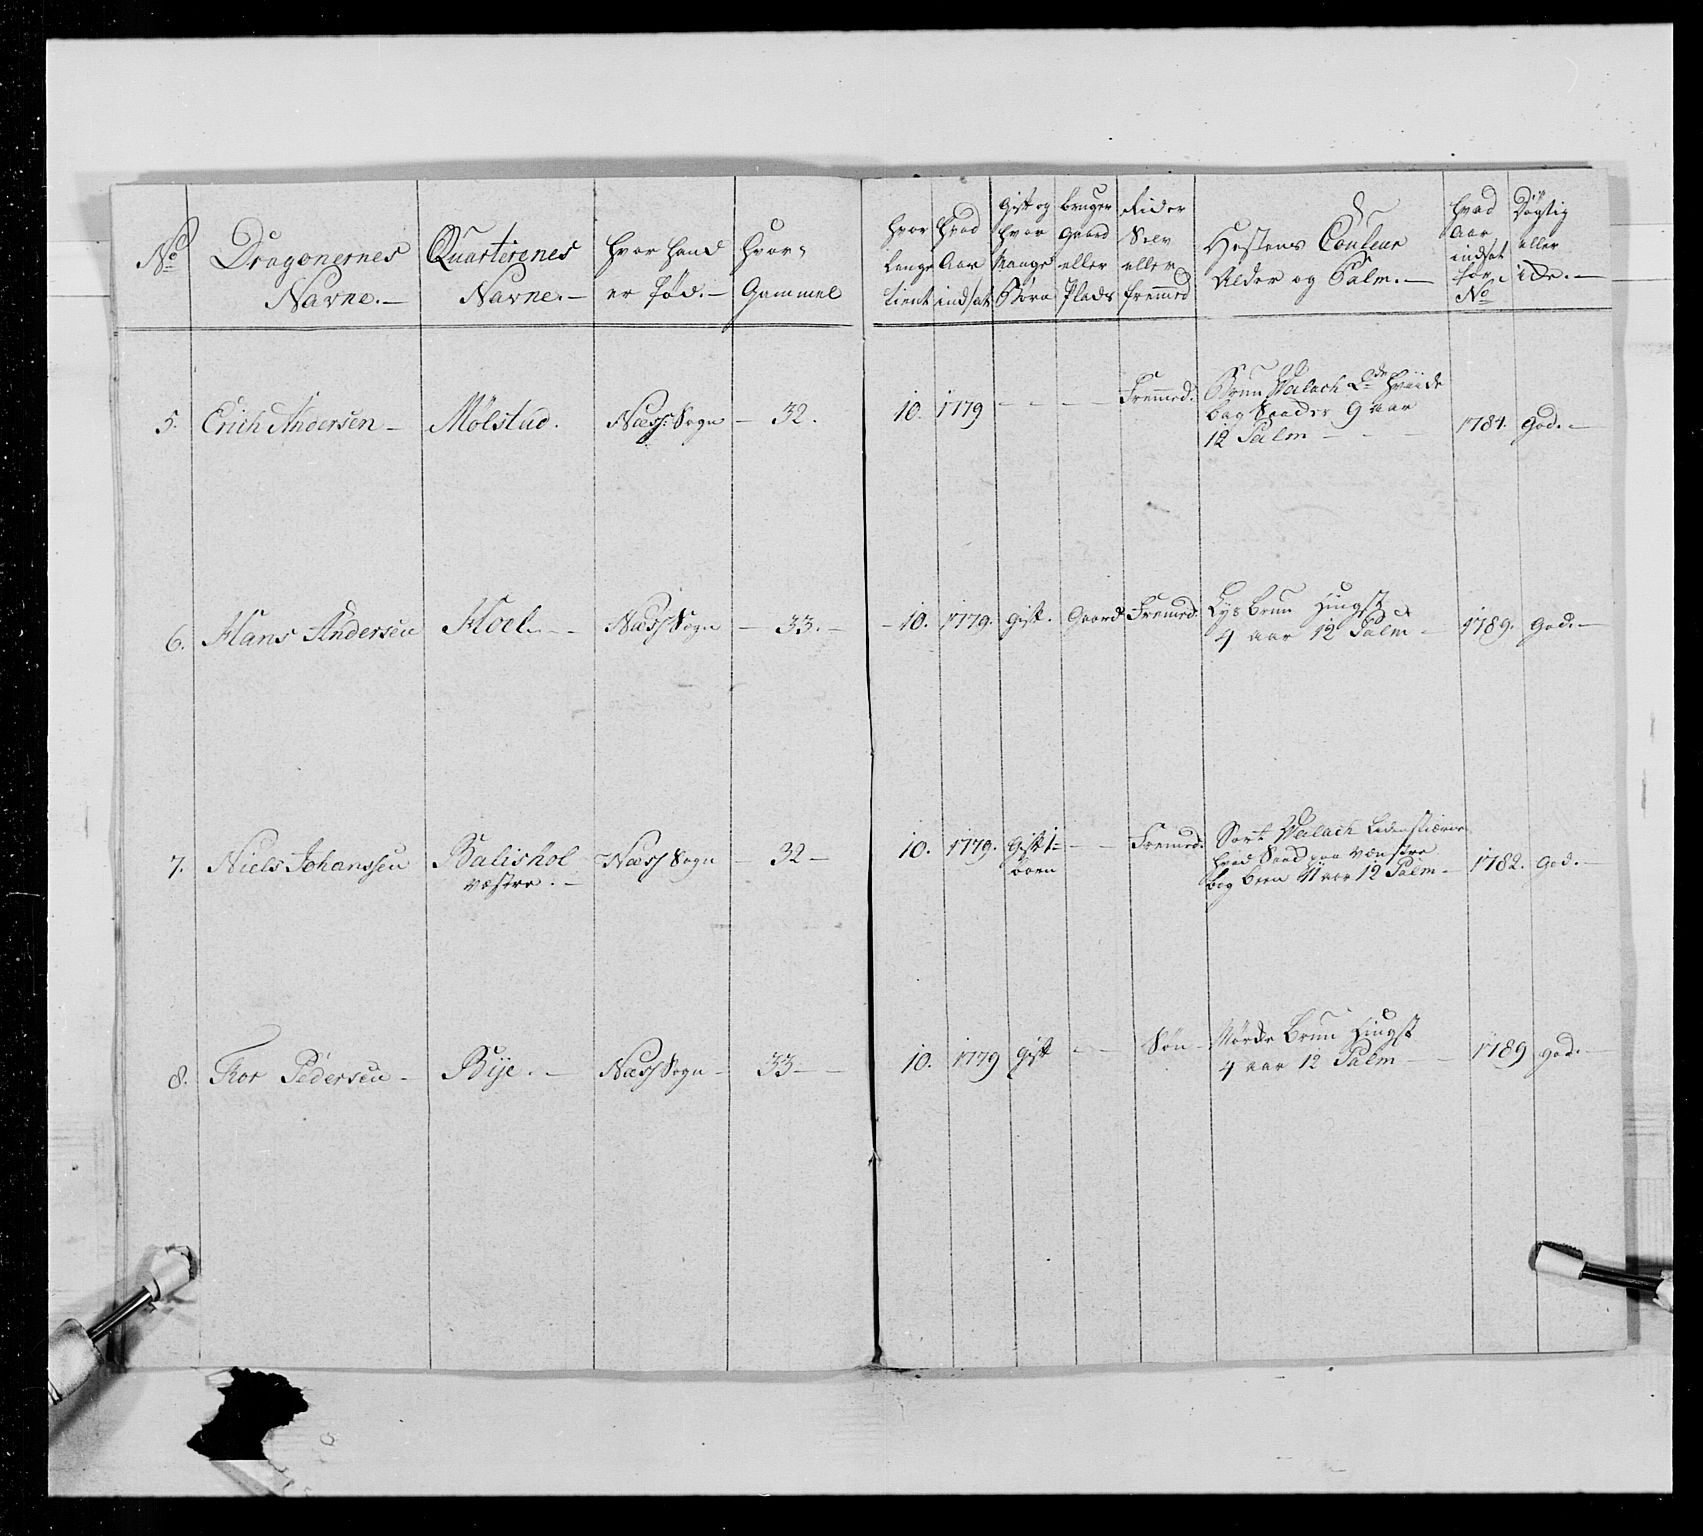 No
Dragonernes Navne. —
Quarterenes Navne. —
hvor hand er fød. —
hvor-Gammel
hvor lenge tient
hvad Aar indsat
Gift og hvor mange Børn
bruger Gaard eller Plads
Rider Selv eller fremmed
Hestens Couleur Alder og Palm. —
hvad Aar indsat for No
Døgtig eller
5. Erich Andersen — Mølstad. Næss Sogn — 32. 10. 1779 — — — — Fremmed. Brun Valach hviide
bag Fødder 9 aar
12 Palm — — — 1784. God. —
6. Hans Andersen Hoel. — — Næss Sogn — 33. — — 10. 1779. Gift. Gaard Fremed. Lys brun Hingst
4 aar 12 Palm — 1789. God. —
7. Niels Johanssen Balishol Næss Sogn — 32 — 10. 1779. Gift 1= — — Fremed. Sort Valach
væstre. — barn hvid paa Vænstre
bag been 11 aar 12 Palm — 1782. God. —
8. Thor Pedersen — Bije. — Næss Sogn — 33 — — 10. 1779 Gift — — Søn — Mørke Brun Hingst
4 aar 12 Palm — — 1789 god. —